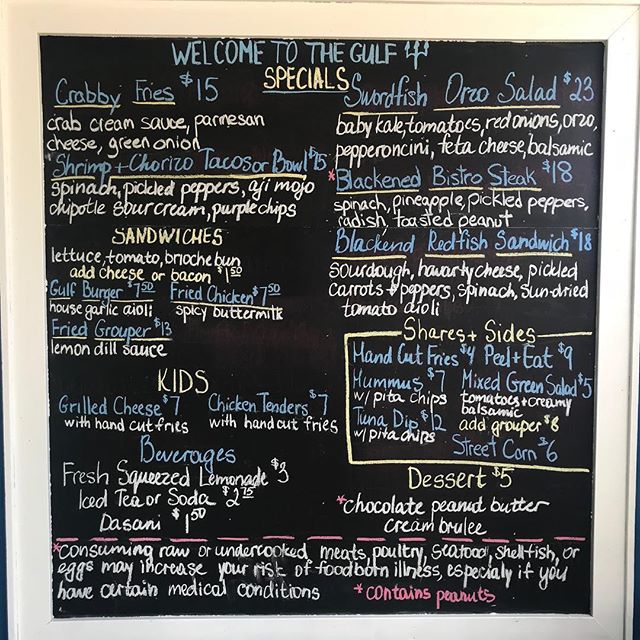 WELCOME TO THE GULF
SPECIALS
Crabby Fries $15
crab cream sauce, parmesan
cheese, green onion
Shrimp + Chorizo Tacos or Bowl $15
spinach, pickled peppers, aji mojo
chipotle sour cream, purple chips
SANDWICHES
lettuce, tomato, brioche bun
add cheese or bacon $1.50
Gulf Burger $7.50 Fried Chicken $7.50
house garlic aioli spicy buttermilk
Fried Grouper $13
lemon dill sauce
KIDS
Grilled Cheese $7 Chicken Tenders $7
with hand cut fries with hand cut fries
Beverages
Fresh Squeezed Lemonade $3
Iced Tea or Soda $2.75
Dasani $1.50
Swordfish Orzo Salad $23
baby kale, tomatoes, red onions, orzo,
pepperoncini, feta cheese, balsamic
*Blackened Bistro Steak $18
spinach, pineapple, pickled peppers,
radish, toasted peanut
Blackend Redfish Sandwich $18
sourdough, havarty cheese, pickled
carrots + peppers, spinach, sun-dried
tomato aioli
Shares + Sides
Hand Cut Fries $4 Peel + Eat $9
Hummus $7 Mixed Green Salad $5
w/ pita chips tomatoes + creamy
balsamic
Tuna Dip $12 add grouper $8
w/ pita chips
Street Corn $6
Dessert $5
*chocolate peanut butter
cream brulee
*consuming raw or undercooked meats, poultry, seafood, shellfish, or
eggs may increase your risk of foodborn illness, especialy if you
have certain medical conditions *contains peanuts